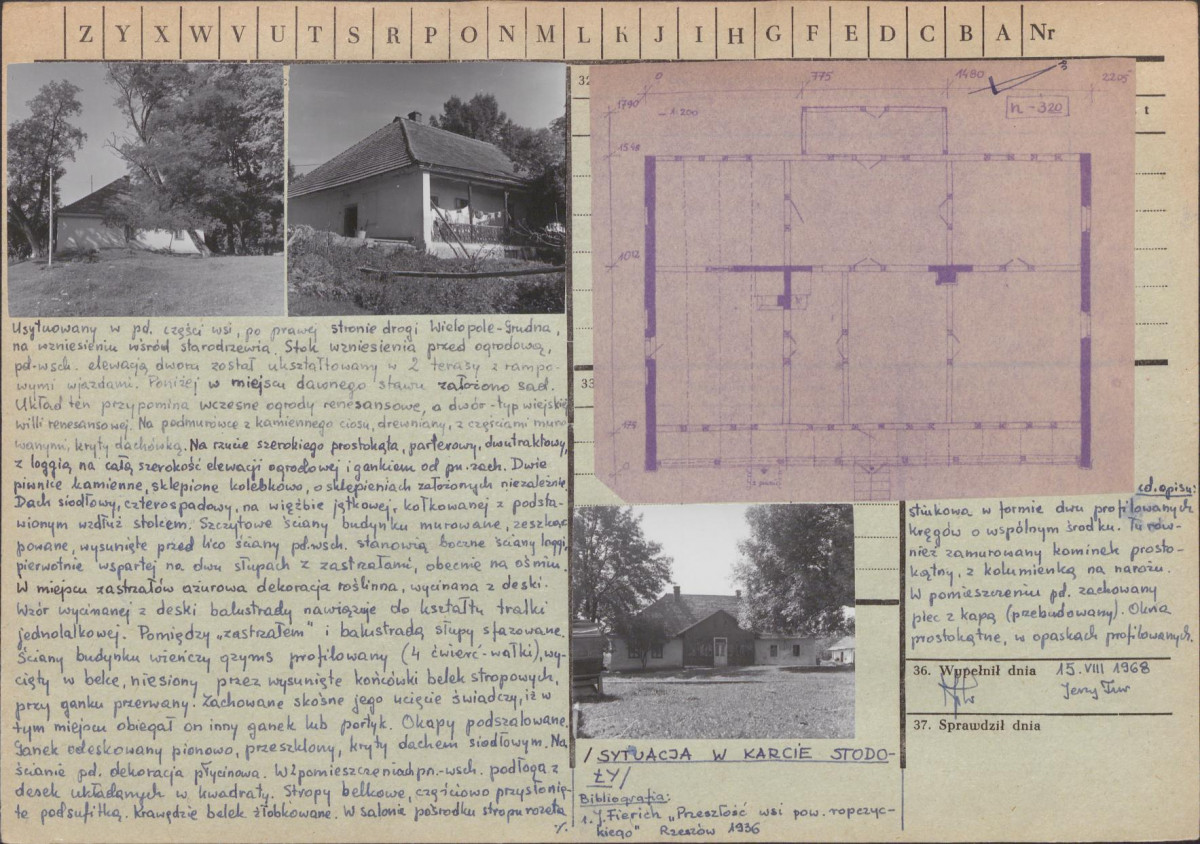 Z Y X W V U T S R P O N M L K J I H G F E D C B A Nr
Usytuowany w pd. części wsi, po prawej stronie drogi Wielopole-Brudna,
na wzniesieniu wśród starodrzewia. Stok wzniesienia przed ogrodową,
pd-wsch. elewacją dworu został ukształtowany w 2 terasy z rampo-
wymi wjazdami. Poniżej w miejscu dawnego stawu założono sad.
Układ ten przypomina wczesne ogrody renesansowe, a dwór-typ wiejskiej
willi renesansowej. Na podmurówce z kamiennego ciosu, drewniany, z częściami muro
wanymi, kryty dachówką. Na rzucie szerokiego prostokąta, parterowy, dwutraktowy,
z loggią, na całą szerokość elewacji ogrodowej i gankiem od pn.zach. Dwie
piwnice kamienne, sklepione kolebkowo, o sklepieniach założonych niezależnie.
Dach siodłowy, czterospadowy, na więźbie jętkowej, kołkowanej z podsta-
wionym wzdłuż stolcem. Szczytowe ściany budynku murowane, zeszkar
powane, wysunięte przed lico ściany pd.wsch. stanowią boczne ściany loggi,
pierwotnie wspartej na dwu słupach z zastrzałami, obecnie na ośmiu.
W miejscu zastrzałów ażurowa dekoracja roślinna, wycinana z deski.
Wzór wycinanej z deski balustrady nawiązuje do kształtu tralki
jednolalkowej. Pomiędzy "zastrzałem" i balustradą słupy sfazowane.
Ściany budynku wieńczy gzyms profilowany (4 ćwierć-wałki), wy-
cięty w belce, niesiony przez wysunięte końcówki belek stropowych,
przy ganku przerwany. Zachowane skośne jego ucięcie świadczy, iż w
tym miejscu obiegał on inny ganek lub portyk. Okapy podszalowane.
Ganek odeskowany pionowo, przeszklony, kryty dachem siodłowym. Na
ścianie pd. dekoracja płycinowa. W 2 pomieszczeniach pn.-wsch. podłoga z
desek układanych w kwadraty. Stropy belkowe, częściowo przysłonię-
te podsufitką. Krawędzie belek żłobkowane. W salonie pośrodku stropu rozeta
./.
32
33
t
0 775 1480 2205
1790
1:200
n-320
1540
1012
0
/SYTUACJA W KARCIE STODO-
ŁY/
Bibliografia:
1. J. Fierich "Przeszłość wsi pow. ropczyc-
kiego" Rzeszów 1936
cd. opisu:
stiukowa w formie dwu profilowanych
kręgów o wspólnym środku. Tu rów-
nież zamurowany kominek prosto-
kątny, z kolumienką na narożu.
W pomieszczeniu pd. zachowany
piec z kapą (przebudowany). Okna
prostokątne, w opaskach profilowanych.
36. Wypełnił dnia 15.VIII 1968
Jerzy Tur
37. Sprawdził dnia